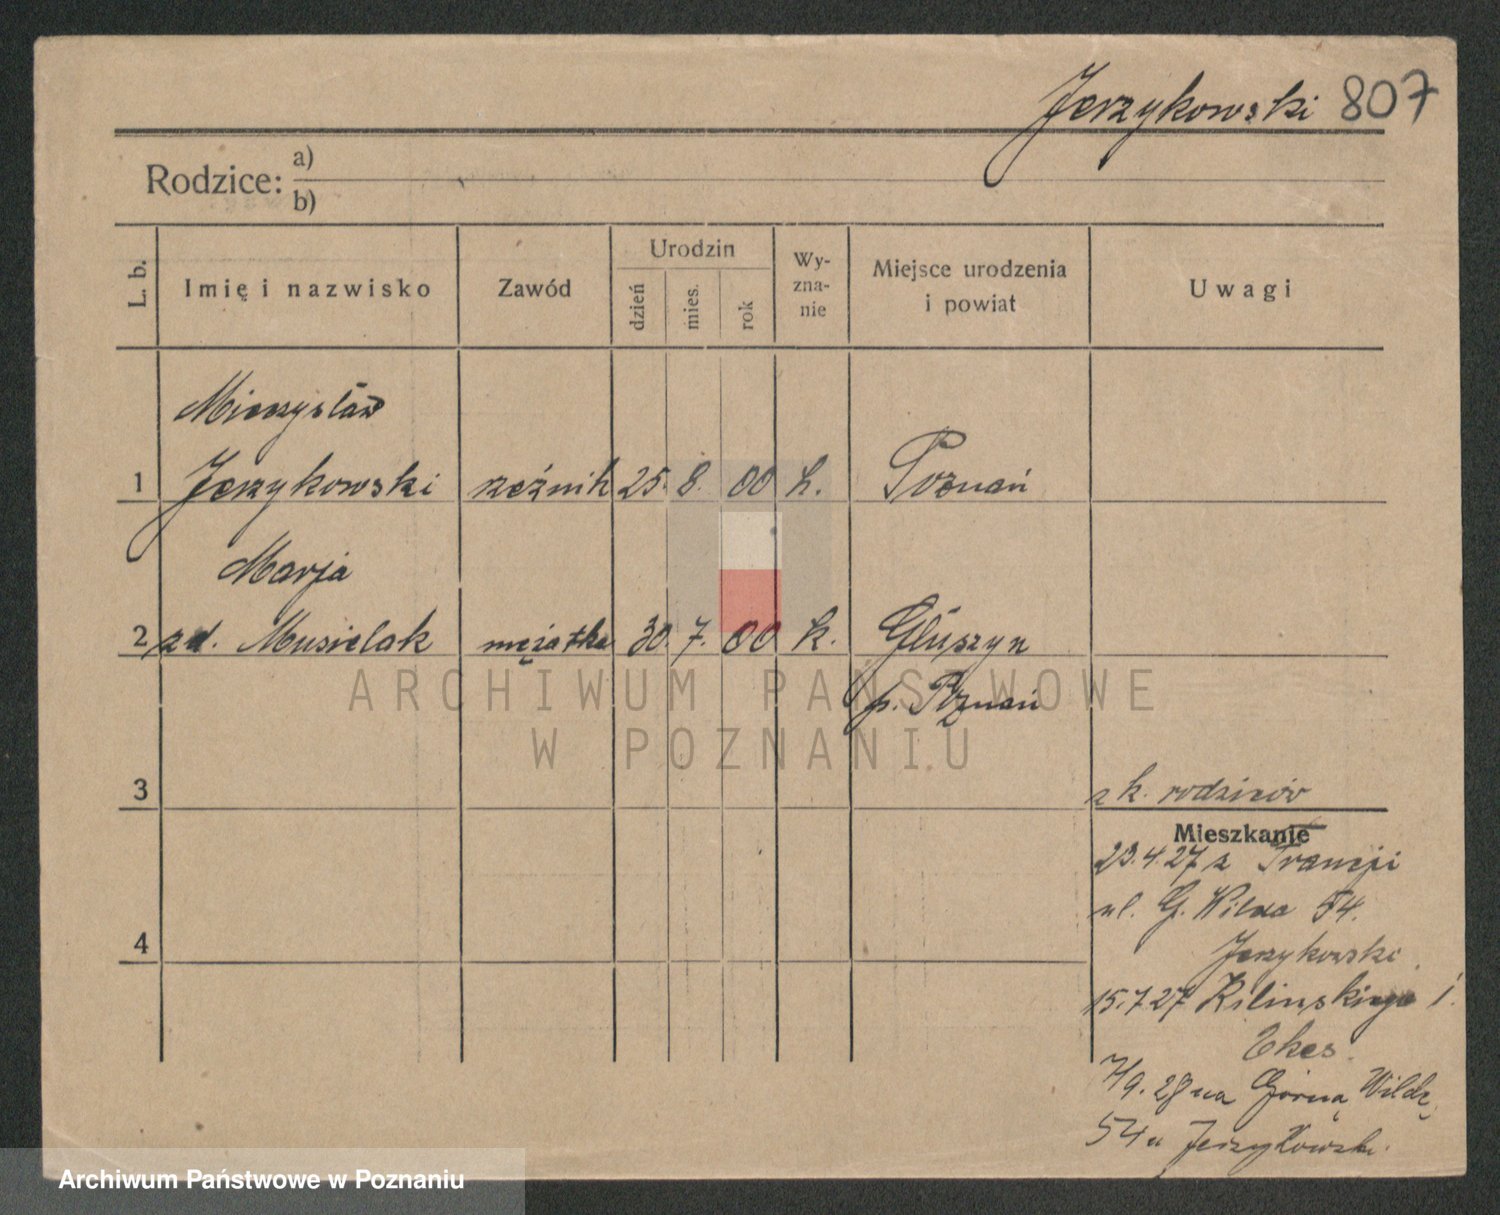 Jerzykowski 807
Rodzice: a)
b)
L. b.
Imię i nazwisko
Zawód
Urodzin
dzień
mies.
rok
Wy-
zna-
nie
Miejsce urodzenia
i powiat
Uwagi
Mieczysław
1 Jerzykowski rzeźnik 25. 8. 00 k. Poznań
Marja
2 zd. Musielak mężatka 30. 7. 00 k. Głuszyn
p. Poznań
ARCHIWUM PAŃSTWOWE
W POZNANIU
3
z k. rodziców
Mieszkanie
23.4.27 z Francji
ul. G. Wilda 54.
4
Jerzykowski
15.7.27 Kilińskiego 1.
7/9.28 na Górną Wildę
54 u Jerzykowski.
Archiwum Państwowe w Poznaniu